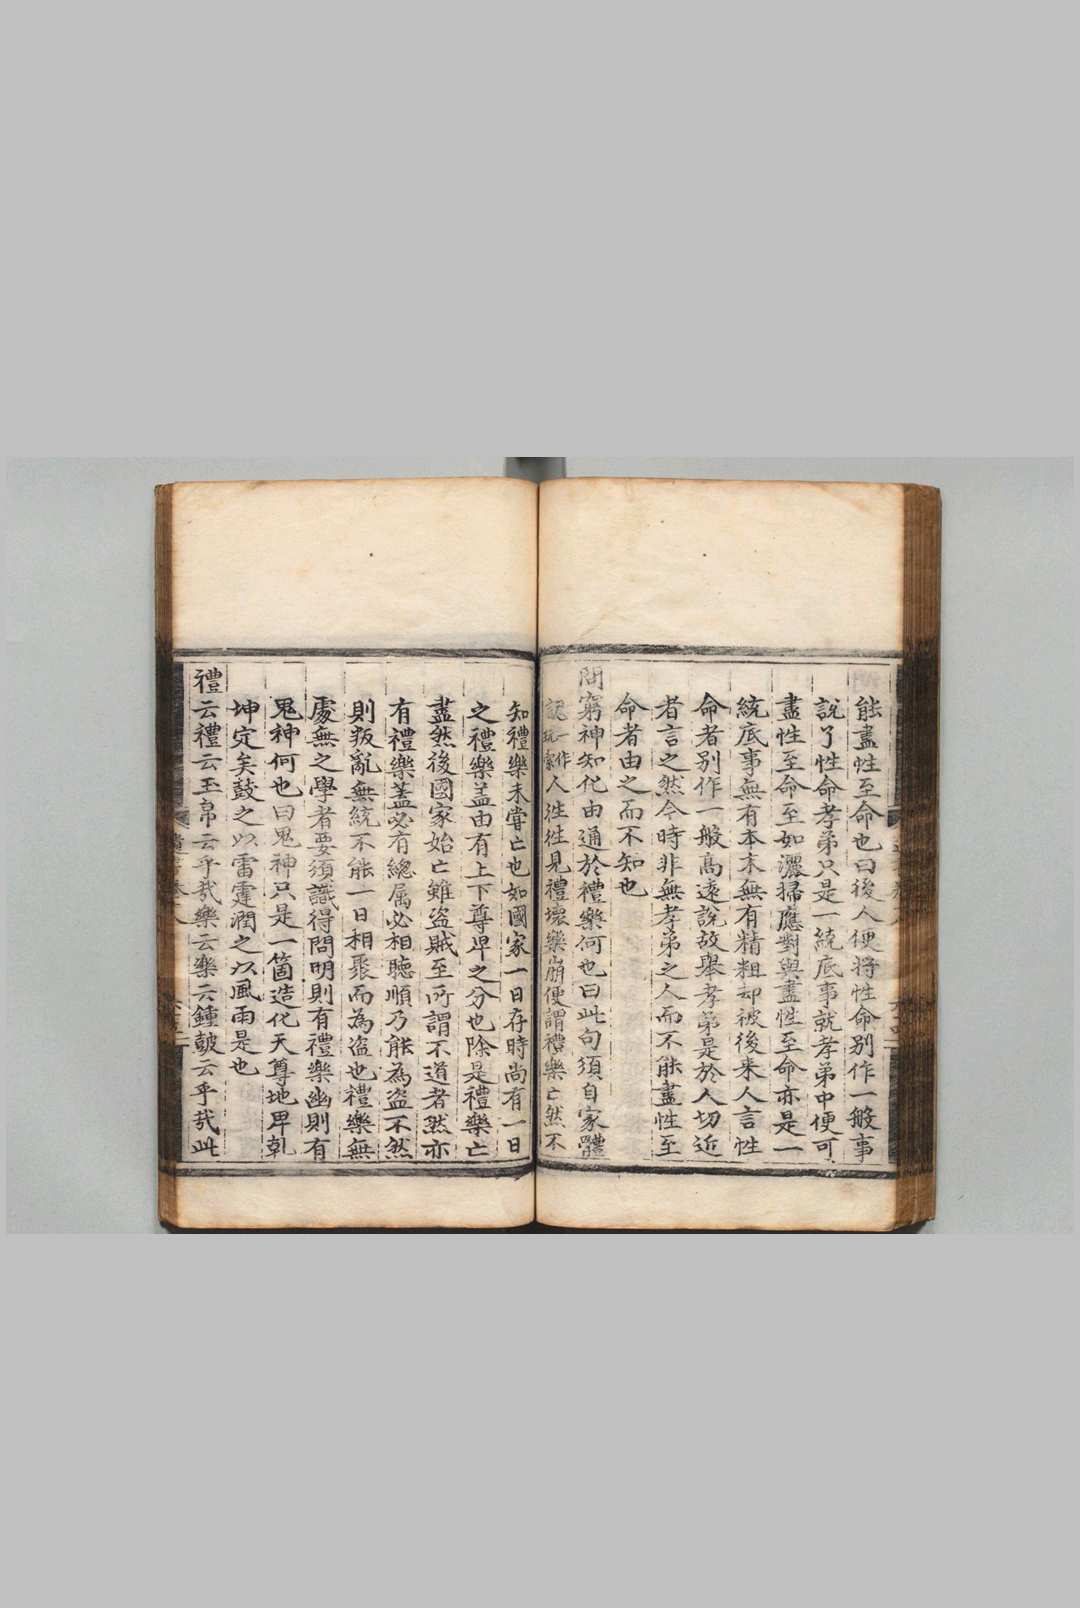 能盡性至命也曰後人便將性命別作一般事
說了性命孝弟只是一統底事就孝弟中便可
盡性至命至如灑掃應對與盡性至命亦是一
統底事無有本末無有精粗却被後来人言性
命者別作一般高遠說故舉孝弟是於人切近
者言之然今時非無孝弟之人而不能盡性至
命者由之而不知也
問窮神知化由通於禮樂何也曰此句須自家體
認一作玩索人徃徃見禮壞樂崩便謂禮樂亡然不
知禮樂未嘗亡也如國家一日存時尚有一日
之禮樂盖由有上下尊卑之分也除是禮樂亡
盡然後國家始亡雖盜賊至所謂不道者然亦
有禮樂蓋必有總属必相聽順乃能為盗不然
則叛亂無統不能一日相聚而為盗也禮樂無
處無之學者要須識得問明則有禮樂幽則有
鬼神何也曰鬼神只是一箇造化天尊地卑乾
坤定矣鼓之以雷霆潤之以風雨是也
禮云禮云玉帛云乎㦲樂云樂云鍾皷云乎㦲此